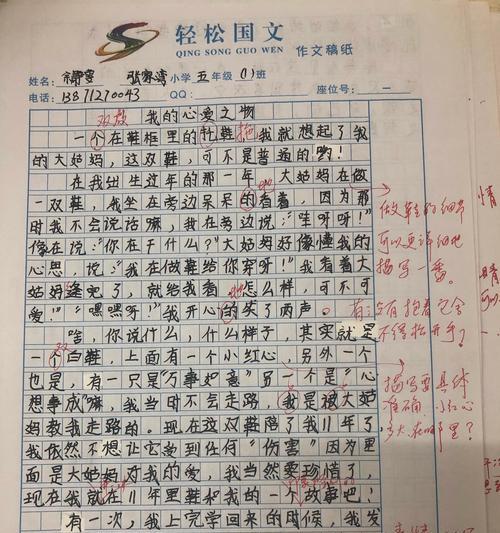 轻松国文
QING SONG GUO WEN
作文稿纸
姓名: 小学 五 年级 (1) 班
电话: 13871270043 QQ: 座位号: 一
双放
我的心爱之物
一个在鞋框里的 鞋 我就想起了我
的大姑妈,这双鞋,可不是普通的哟!
在我出生过年的那一年,大姑妈在做
一双鞋,我坐在旁边呆呆的看着,因为那
时我不会说话嘛,我在旁边说:“哇呀呀!”
像在说:“你在干什么?”大姑妈好像懂我的
心思,说:“我在做鞋给你穿呀!”我看着大
姑妈缝吧了,就给我看怎么样,可不可
爱!”“嘿嘿呀!”我开心的笑了两声。
啥,你说什么,什么样子,其实就是
一个白鞋,上面有一个小红心,另外一个
也是,有一只是“万事如意”另一个是“心
想事成”嘛,我当时不会走路,我是被大姑
妈教我走路的。现在这双鞋陪了我11年了,
我依然不想让它受到任何“伤害”因为里
面是大姑妈对我的爱,我当然要珍惜了,
现在我就在11年里鞋和我的一个故事吧!
有一次,我上完学回来的时候,我发
做鞋的细节
可以更详细地
描写一番。
描写要具体
准确,小红心
多大,在哪里?
情